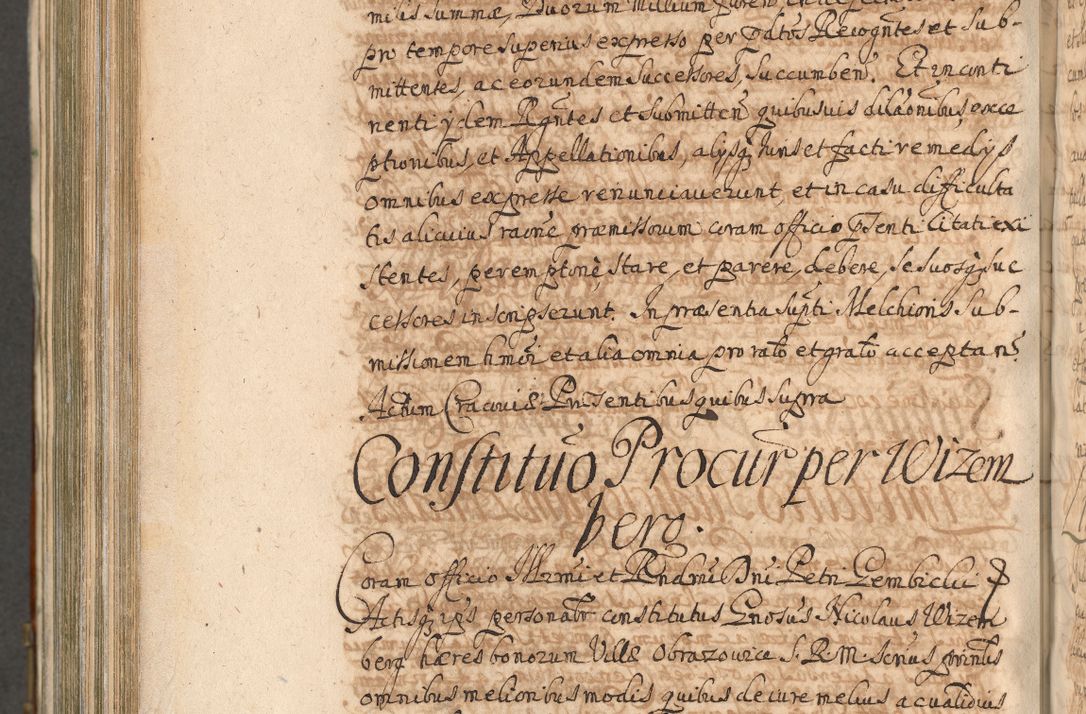 milis summæ, Duorum Millium
pro tempore superius expresso per pdatos Recogntes et sub-
mittentes, ac eorundem Successores, succumben. Et in conti
nenti ydem Rgntes et submitten quibusvis dilaonibus, exce
ptionibus, et Appellationibus, alijsq Iuris et facti remedijs
omnibus expresse renunciaverunt, et in casu difficulta
tis alicuius raone præmissorum coram officio pnti Citati exi
stentes, peremptone, stare, et parere, debere, se suosq suc
cessores inscripserunt. In præsentia supti Melchioris sub-
missionem hmoi et alia omnia pro rato et grato acceptan.
Actum Cracoviæ Præsentibus quibus supra
Constituo Procur per Wizem
berg.
Coram officio Illrmi et Rndmi Dni Petri Gembicki
Actisq ipis personalr constitutus Gnosus Nicolaus Wizem
berg hæres bonorum Villæ Obrazowice S. R. M.
omnibus melioribus modis quibus de iure melius ac validius